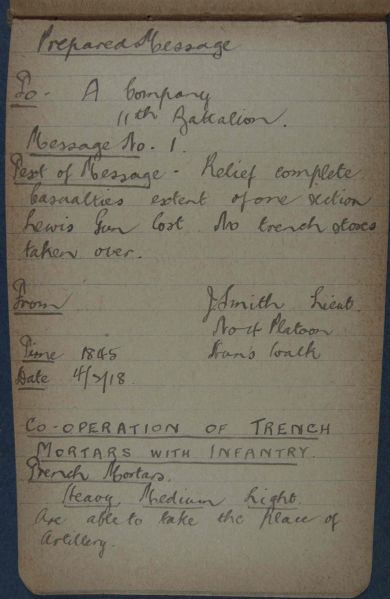 Prepared Message
To - A Company
11th Battalion.
Message No. 1.
Text of Message - Relief complete
Casualties extent of one section
Lewis Gun lost No trench stores
taken over.
From J Smith Lieut.
No 4 Platoon
Time 1845 Walk
Date 4/5/18.
CO-OPERATION OF TRENCH
MORTARS WITH INFANTRY.
Trench Mortars.
Heavy Medium Light.
Are able to take the place of
Artillery.